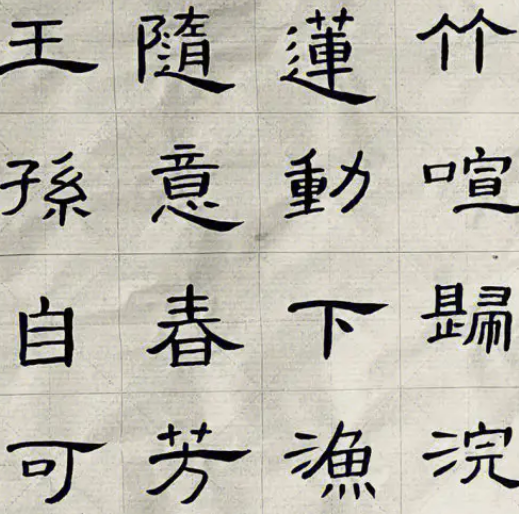 竹喧歸浣
蓮動下漁
隨意春芳
王孫自可